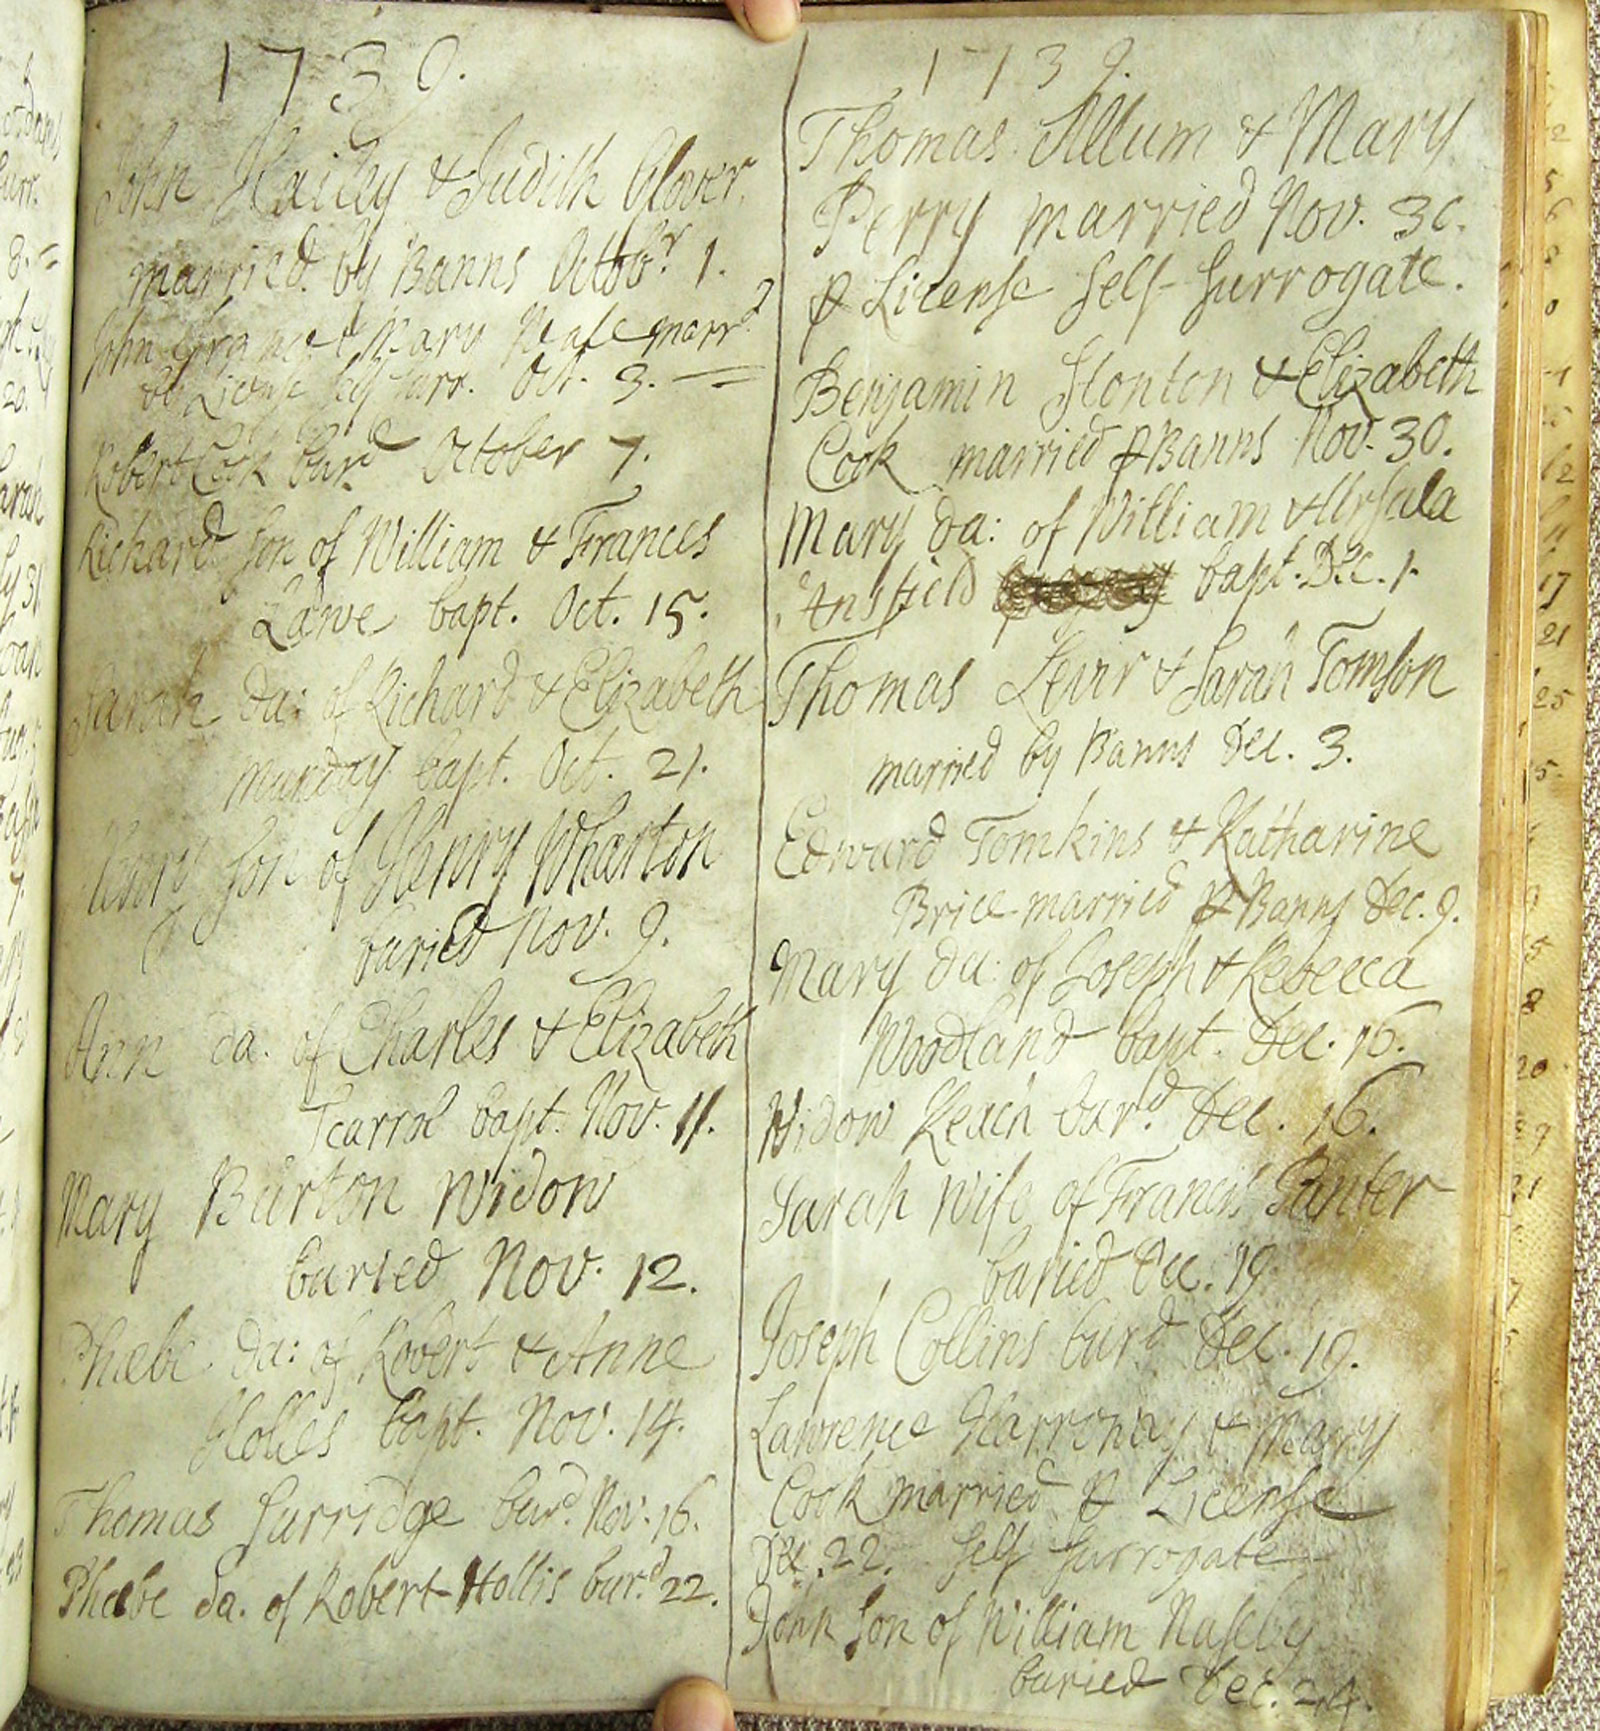 1739.
John Hailey & Judith Glover
married by Banns Octobr. 1.
John & Mary Neale marrd.
by License self surr. Oct. 3.
Robert Cook burd. October 7.
Richard son of William & Frances
Lawe bapt. Oct. 15.
Sarah da: of Richard & Elizabeth
Munday bapt. Oct. 21.
Henry son of Henry Wharton
buried Nov. 9.
Ann da. of Charles & Elizabeth
bapt. Nov. 11.
Mary Burton Widow
buried Nov. 12.
Phœbe da: of Robert & Anne
Holles bapt. Nov. 14.
Thomas Surridge burd. Nov. 16.
Phœbe da. of Robert Hollis burd. 22.
1739.
Thomas Allum & Mary
Perry married Nov. 30.
⅌ License self Surrogate.
Benjamin Stonton & Elizabeth
Cook married ⅌ Banns Nov. 30.
Mary da: of William & Ursula
Ansfield bapt. Dec. 1.
Thomas & Sarah Tomson
married by Banns Dec. 3.
Edward Tomkins & Katharine
Brice married ⅌ Banns Dec. 9.
Mary da: of Joseph & Rebecca
Woodland bapt. Dec. 16.
Widow Keach burd. Dec. 16.
Sarah Wife of Francis Ganter
buried Dec. 19
Joseph Collins burd. Dec. 19.
Lawrence Harroway & Mary
Cook married ⅌ License
Dec. 22. Self Surrogate
John Son of William Naseby
buried Dec. 24.